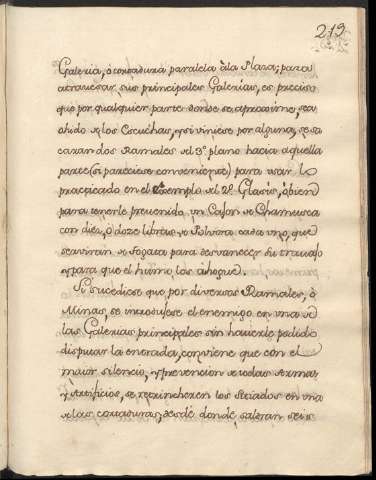 219
Galeria, ò cortadura paralela àla Plaza; para
atravesar sus principales Galerias, es preciso
que por qualquier parte donde se aproxime, sea
ohido de los Escuchas, y si viniese por alguna, se sa
caran dos Ramales del 3º. plano hacia aquella
parte (si pareciese conveniente) para usar lo
practicado en el Exemplo del 2º. Glasis, òbien
para tenerle prevenido un Cajon de Chamusca
con diez, ò doze libras de Polvora cada uno, que
serviràn de fogata para desvanecer su travajo
y para que el humo los ahogue.
Si sucediese que por diversos Ramales, ò
Minas, se introdujese el enemigo en una de
las Galerias principales sin haverle podido
disputar la entrada, conviene que con el
maior silencio, y prevencion de todas Armas,
y Artificios, se retrincheren los Sitiados en una
de las cortaduras, desde donde saldran seis